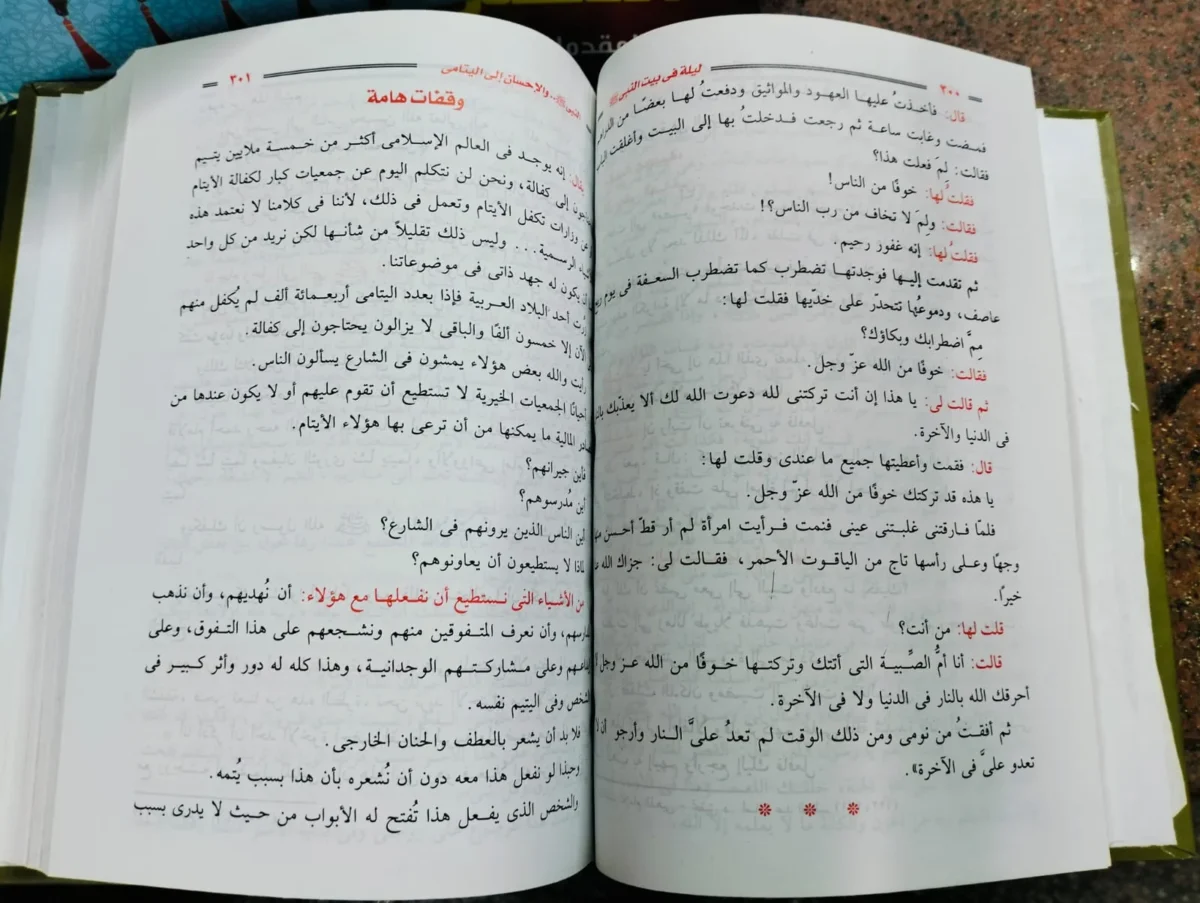 ٣٠٠
ليلة فى بيت النبى ﷺ
قال: فأخذتُ عليها العهود والمواثيق ودفعتُ لها بعضًا من
فمضت وغابت ساعة ثم رجعت فدخلتُ بها إلى البيت وأغلقت
فقالت: لِمَ فعلت هذا؟
فقلت لها: خوفًا من الناس!
فقالت: ولِمَ لا تخاف من رب الناس؟!
فقلتُ لها: إنه غفور رحيم.
ثم تقدمت إليها فوجدتها تضطرب كما تضطرب السعفة فى يوم
عاصف، ودموعُها تتحدّر على خدّيها فقلت لها:
مِمَّ اضطرابك وبكاؤك؟
فقالت: خوفًا من الله عزّ وجل.
ثم قالت لى: يا هذا إن أنت تركتنى لله دعوت الله لك ألا يعذّبك
فى الدنيا والآخرة.
قال: فقمت وأعطيتها جميع ما عندى وقلت لها:
يا هذه قد تركتك خوفًا من الله عزّ وجل.
فلمّا فارقتنى غلبتنى عينى فنمت فرأيت امرأة لم أر قطّ أحسن
وجهًا وعلى رأسها تاج من الياقوت الأحمر، فقالت لى: جزاك الله
خيرًا.
قلت لها: من أنت؟
قالت: أنا أمُّ الصَّبِية التى أتتك وتركتها خوفًا من الله عز وجل
أحرقك الله بالنار فى الدنيا ولا فى الآخرة.
ثم أفقتُ من نومى ومن ذلك الوقت لم تعدُ علىَّ النار وأرجو أن لا
تعدو علىَّ فى الآخرة».
النبى ﷺ.. والإحسان إلى اليتامى
٣٠١
وقفات هامة
يقال: إنه يوجد فى العالم الإسلامى أكثر من خمسة ملايين يتيم
إلى كفالة، ونحن لن نتكلم اليوم عن جمعيات كبار لكفالة الأيتام
عن وزارات تكفل الأيتام وتعمل فى ذلك، لأننا فى كلامنا لا نعتمد هذه
الرسمية... وليس ذلك تقليلاً من شأنها لكن نريد من كل واحد
أن يكون له جهد ذاتى فى موضوعاتنا.
زرت أحد البلاد العربية فإذا بعدد اليتامى أربعمائة ألف لم يُكفل منهم
الآن إلا خمسون ألفًا والباقى لا يزالون يحتاجون إلى كفالة.
رأيت والله بعض هؤلاء يمشون فى الشارع يسألون الناس.
أحيانًا الجمعيات الخيرية لا تستطيع أن تقوم عليهم أو لا يكون عندها من
المالية ما يمكنها من أن ترعى بها هؤلاء الأيتام.
فأين جيرانهم؟
أين مُدرسوهم؟
أين الناس الذين يرونهم فى الشارع؟
لماذا لا يستطيعون أن يعاونوهم؟
من الأشياء التى نستطيع أن نفعلها مع هؤلاء: أن نُهديهم، وأن نذهب
وأن نعرف المتفوقين منهم ونشجعهم على هذا التفوق، وعلى
وعلى مشاركتهم الوجدانية، وهذا كله له دور وأثر كبير فى
الشخص وفى اليتيم نفسه.
فلا بد أن يشعر بالعطف والحنان الخارجى.
وحبذا لو نفعل هذا معه دون أن نُشعره بأن هذا بسبب يُتمه.
والشخص الذى يفعل هذا تُفتح له الأبواب من حيث لا يدرى بسبب